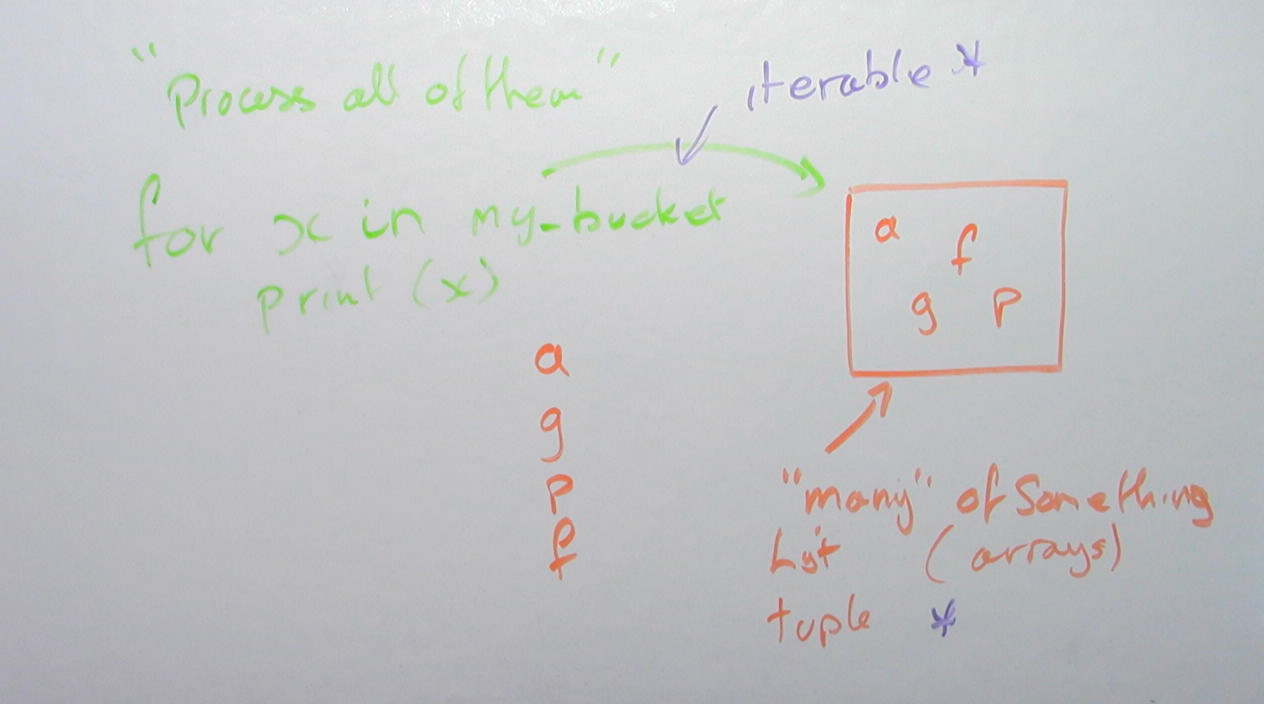 "Process all of them"
iterable *
for x in my_bucket
print (x)
a f
g p
a
g
p
f
"many" of Something
List (arrays)
tuple *